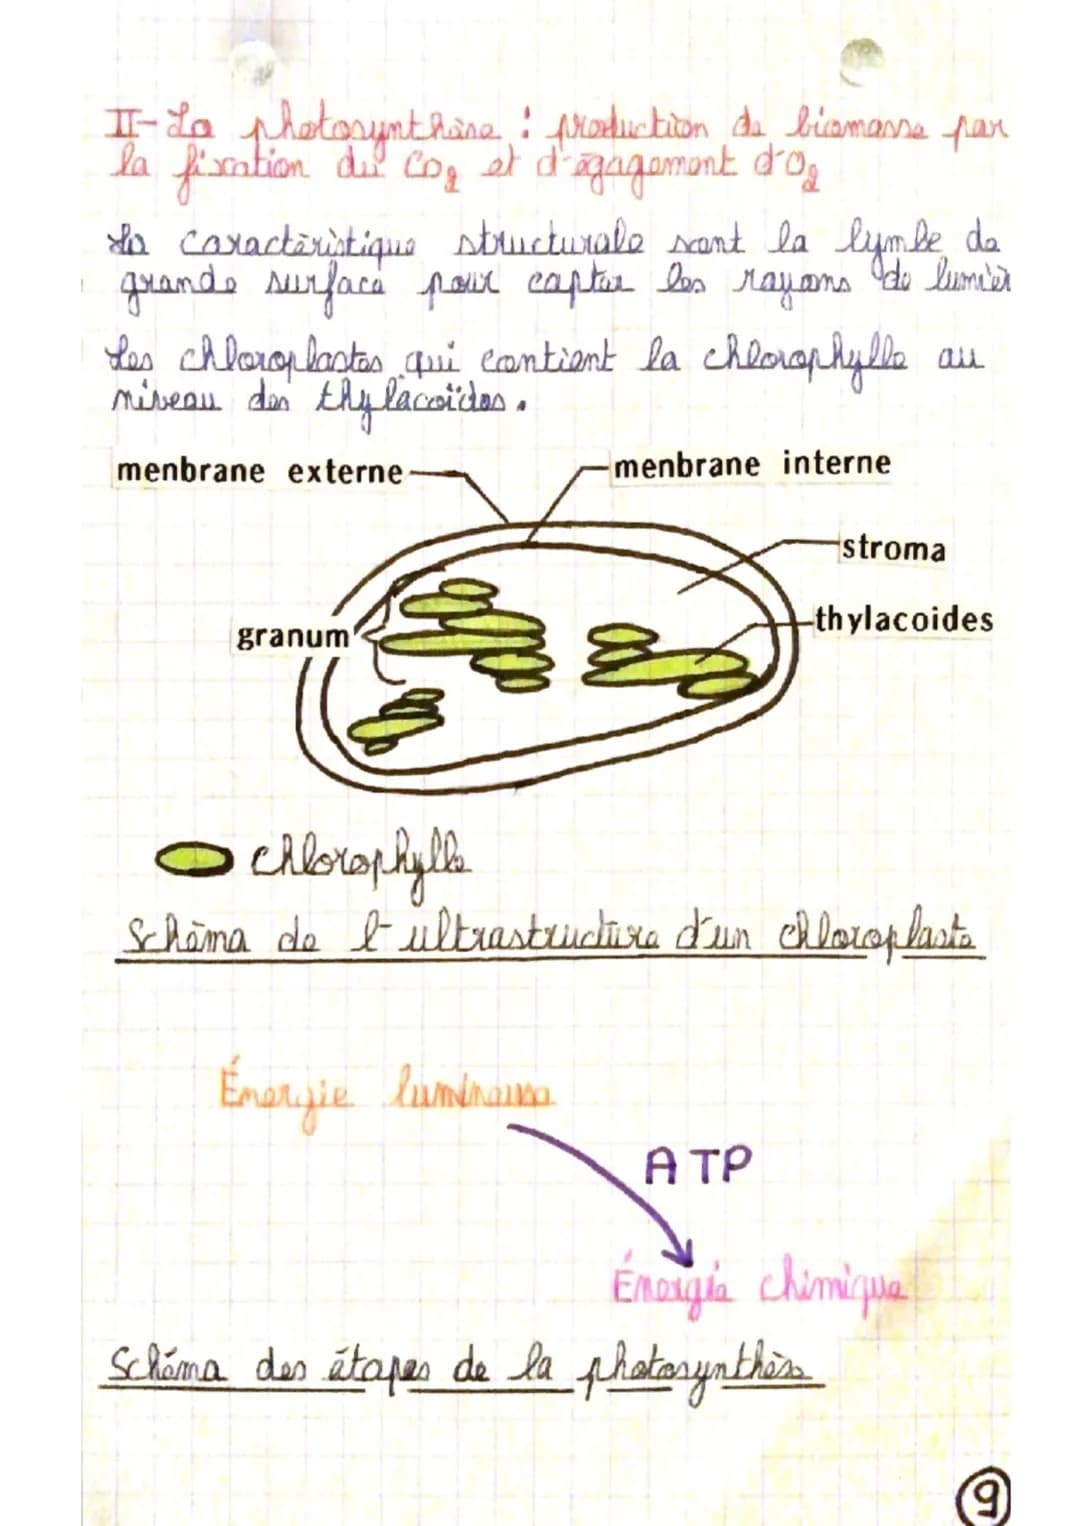 II- La photosynthèse : production de biomasse par
la fixation du CO2 et d'égagement d'O2
La caractéristique structurale sont la lymbe de
grande surface pour capter les rayons de lumièr
Les chloroplastes qui contient la chlorophylle au
niveau des thylacoïdes.
menbrane externe
menbrane interne
stroma
thylacoides
granum
chlorophylle
Schéma de l'ultrastructure d'un chloroplaste
Énergie lumineuse
ATP
Énergie chimique
Schéma des étapes de la photosynthès
9